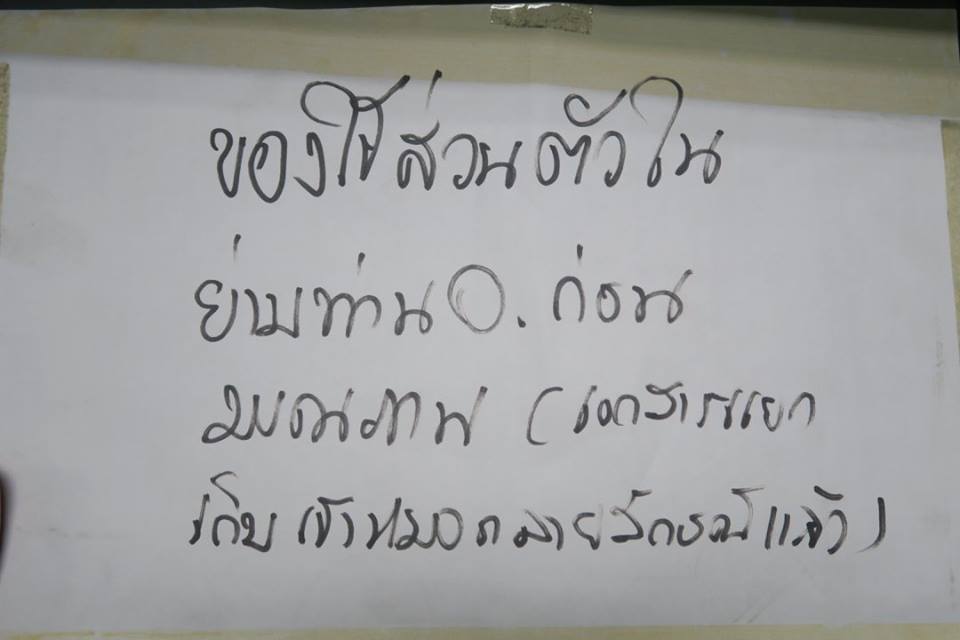 ของใช้ส่วนตัวใน
ย่ามท่าน อ. ก่อน
มรณภาพ (เอกสารแยก
เก็บเข้าหมวดลายลักษณ์แล้ว)